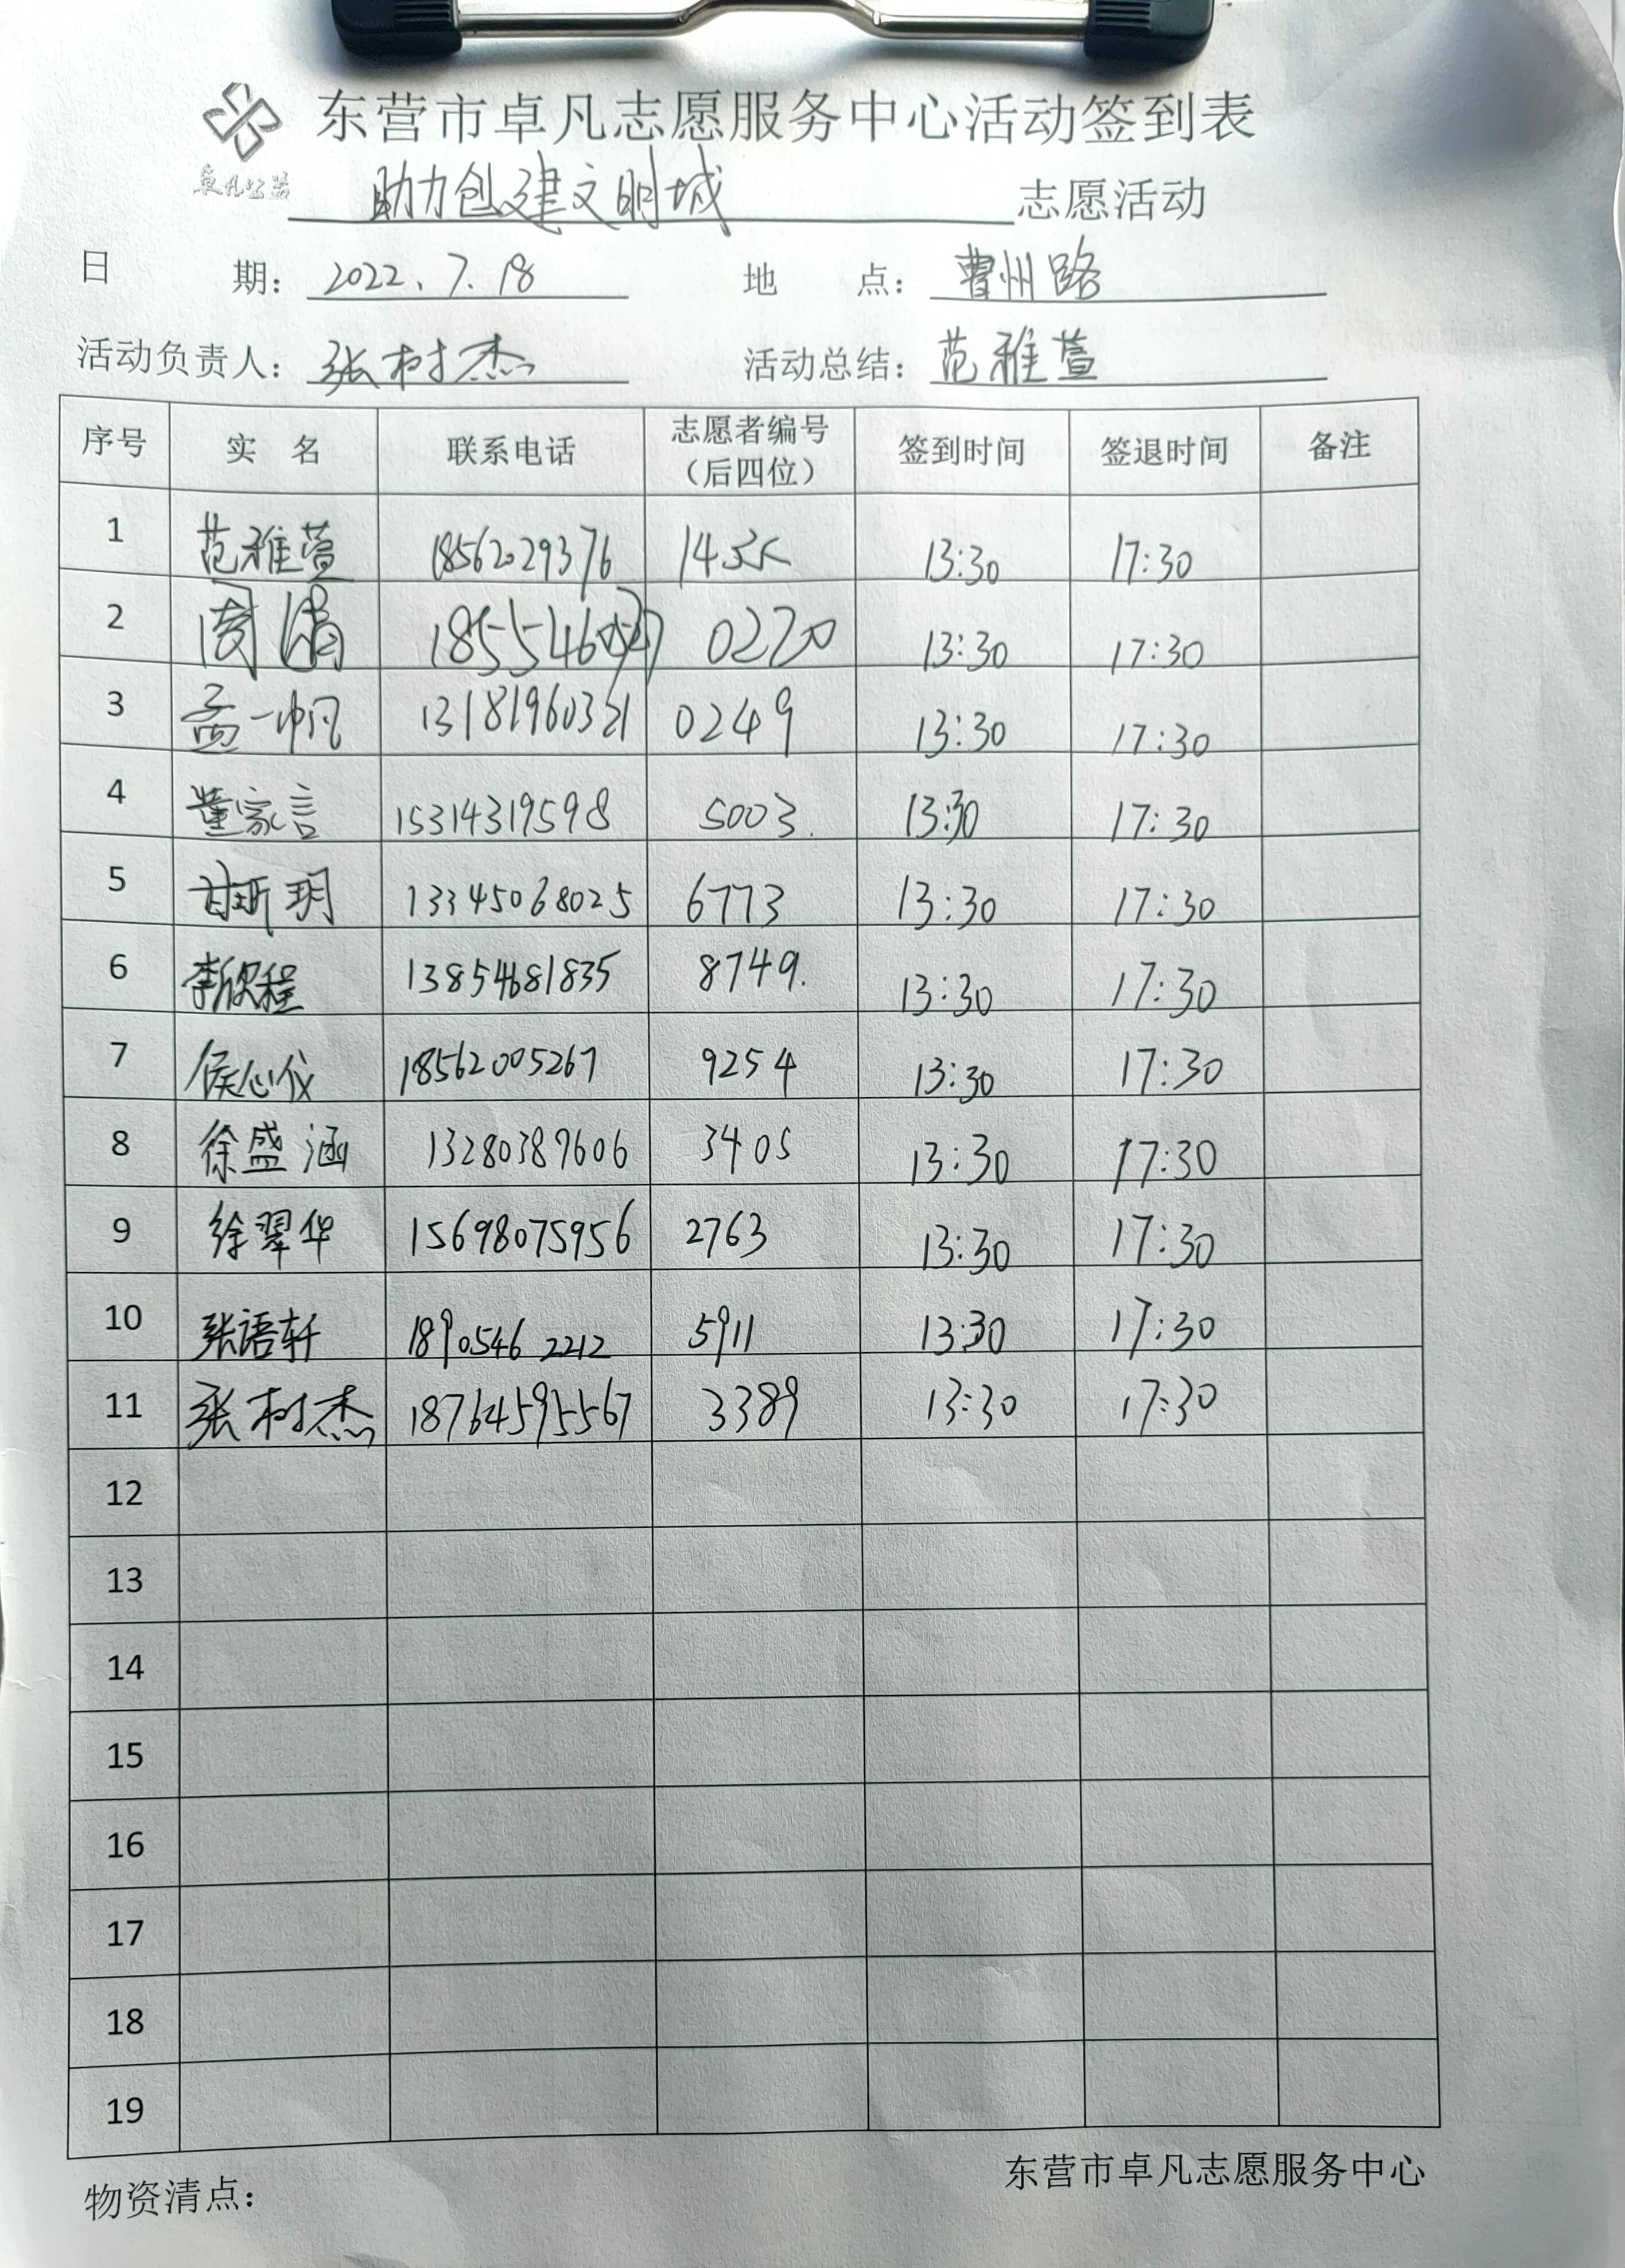 东营市卓凡志愿服务中心活动签到表
卓凡公益
助力创建文明城 志愿活动
日 期： 2022、7.18 地 点： 曹州路
活动负责人： 张树杰 活动总结： 范雅萱
序号 实 名 联系电话 志愿者编号（后四位） 签到时间 签退时间 备注
1 范雅萱 18562029376 13:30 17:30
2 周倩 0220 13:30 17:30
3 孟一帆 0249 13:30 17:30
4 董家言 15314319598 5003. 13:30 17:30
5 甘斯玥 13345068025 6773 13:30 17:30
6 李欣程 13854681835 8749. 13:30 17:30
7 侯心仪 18562005267 9254 13:30 17:30
8 徐盛涵 13280389606 3405 13:30 17:30
9 徐翠华 15698075956 2763 13:30 17:30
10 张语轩 18905462212 5911 13:30 17:30
11 张树杰 18764595567 3389 13:30 17:30
12
13
14
15
16
17
18
19
物资清点： 东营市卓凡志愿服务中心